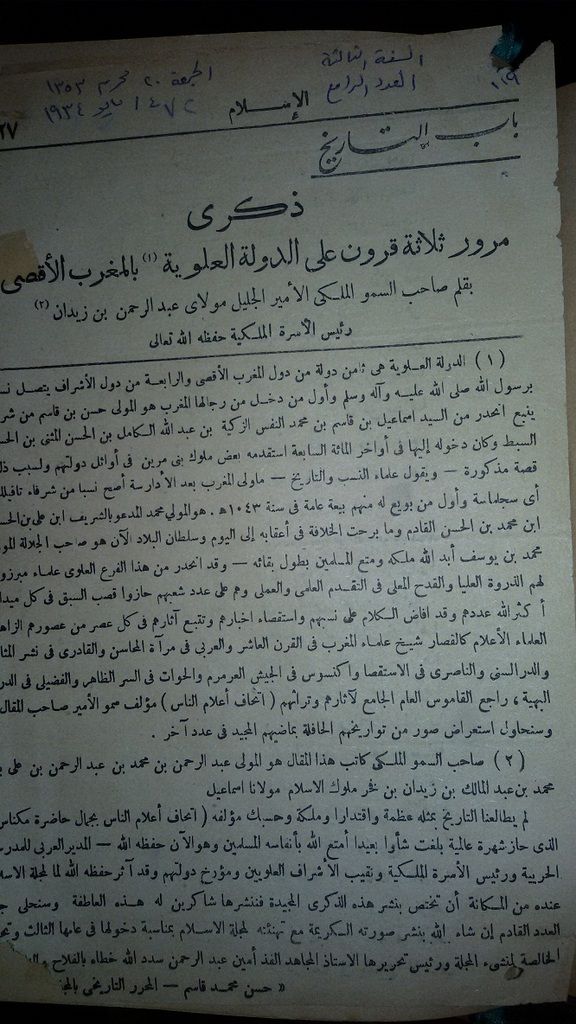 السنة الثالثة
العدد الرابع
الجمعة ٢٠ محرم ١٣٥٣
مايو ١٩٣٤
١١٩
٢٧
الإسلام
باب التاريخ
ذكرى
مرور ثلاثة قرون على الدولة العلوية (١) بالمغرب الأقصى
بقلم صاحب السمو الملكى الأمير الجليل مولاى عبد الرحمن بن زيدان (٢)
رئيس الأسرة الملكية حفظه الله تعالى
(١) الدولة العلوية هى ثامن دولة من دول المغرب الأقصى والرابعة من دول الأشراف يتصل
برسول الله صلى الله عليه وآله وسلم وأول من دخل من رجالها المغرب هو المولى حسن بن قاسم من
ينبع انحدر من السيد اسماعيل بن قاسم بن محمد النفس الزكية بن عبد الله الكامل بن الحسن المثنى بن
السبط وكان دخوله إليها فى أواخر المائة السابعة استقدمه بعض ملوك بنى مرين فى أوائل دولتهم ولسبب
قصة مذكورة — ويقول علماء النسب والتاريخ — ماولى المغرب بعد الأدارسة أصح نسبا من شرفاء
أى سجلماسة وأول من بويع له منهم بيعة عامة فى سنة ١٠٤٣ ه‍ . هوالمولى محمد المدعو بالشريف ابن على بن
ابن محمد بن الحسن القادم وما برحت الخلافة فى أعقابه إلى اليوم وسلطان البلاد الآن هو صاحب الجلالة
محمد بن يوسف أبد الله ملكه ومتع المسلمين بطول بقائه — وقد انحدر من هذا الفرع العلوى علماء
لهم الذروة العليا والقدح المعلى فى التقدم العلمى والعملى وهم على عدد شعبهم حازوا قصب السبق فى كل
أكثر الله عددهم وقد افاض الكلام على نسبهم واستقصاء اخبارهم وتتبع آثارهم فى كل عصر من عصورهم
العلماء الأعلام كالقصار شيخ علماء المغرب فى القرن العاشر والعربى فى مرآة المحاسن والقادرى فى نشر
والدرالسنى والناصرى فى الاستقصا واكنسوس فى الجيش العرمرم والحوات فى السر الظاهر والفضيلى فى
البهية ، راجع القاموس العام الجامع لآثارهم وتراثهم ( اتحاف أعلام الناس ) مؤلف سمو الأمير صاحب
وسنحاول استعراض صور من تواريخهم الحافلة بماضيهم المجيد فى عدد آخر .
(٢) صاحب السمو الملكى كاتب هذا المقال هو المولى عبد الرحمن بن محمد بن عبد الرحمن بن على
محمد بن عبد المالك بن زيدان بن فخر ملوك الاسلام مولانا اسماعيل
لم يطالعنا التاريخ بمثله عظمة واقتدارا وملكة وحسبك مؤلفه ( اتحاف أعلام الناس بجمال حاضرة
الذى حاز شهرة عالمية بلغت شأوا بعيدا أمتع الله بأنفاسه المسلمين وهوالآن حفظه الله — المدير العربى
الحربية ورئيس الأسرة الملكية ونقيب الأشراف العلويين ومؤرخ دولتهم وقد آثر حفظه الله لما لمجلة
عنده من المكانة أن تختص بنشر هذه الذكرى المجيدة فننشرها شاكرين له هذه العاطفة وسنحلى
العدد القادم إن شاء الله بنشر صورته الكريمة مع تهنئته لمجلة الاسلام بمناسبة دخولها فى عامها الثالث
الخالصة لمنشىء المجلة ورئيس تحريرها الاستاذ المجاهد الفذ أمين عبد الرحمن سدد الله خطاه بالفلاح
« حسن محمد قاسم — المحرر التاريخى